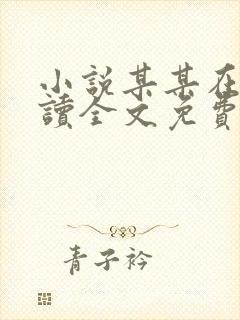 小説某某在
讀全文免費
青子衿